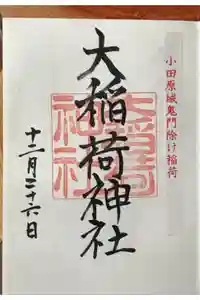 小田原城鬼門除け稲荷
大稲荷神社
十二月二十六日